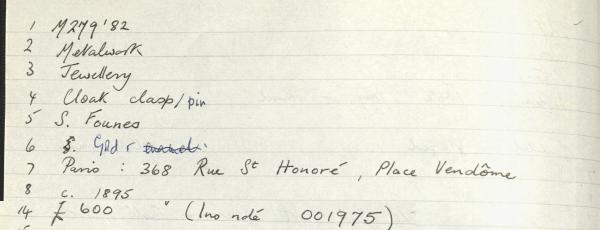 1 M279'82
2 Metalwork
3 Jewellery
4 Cloak clasp/pin
5 S. Founes
6 Gld r
7 Paris : 368 Rue St Honoré, Place Vendôme
8 c. 1895
14 £ 600 " (Ino ndé 001975)